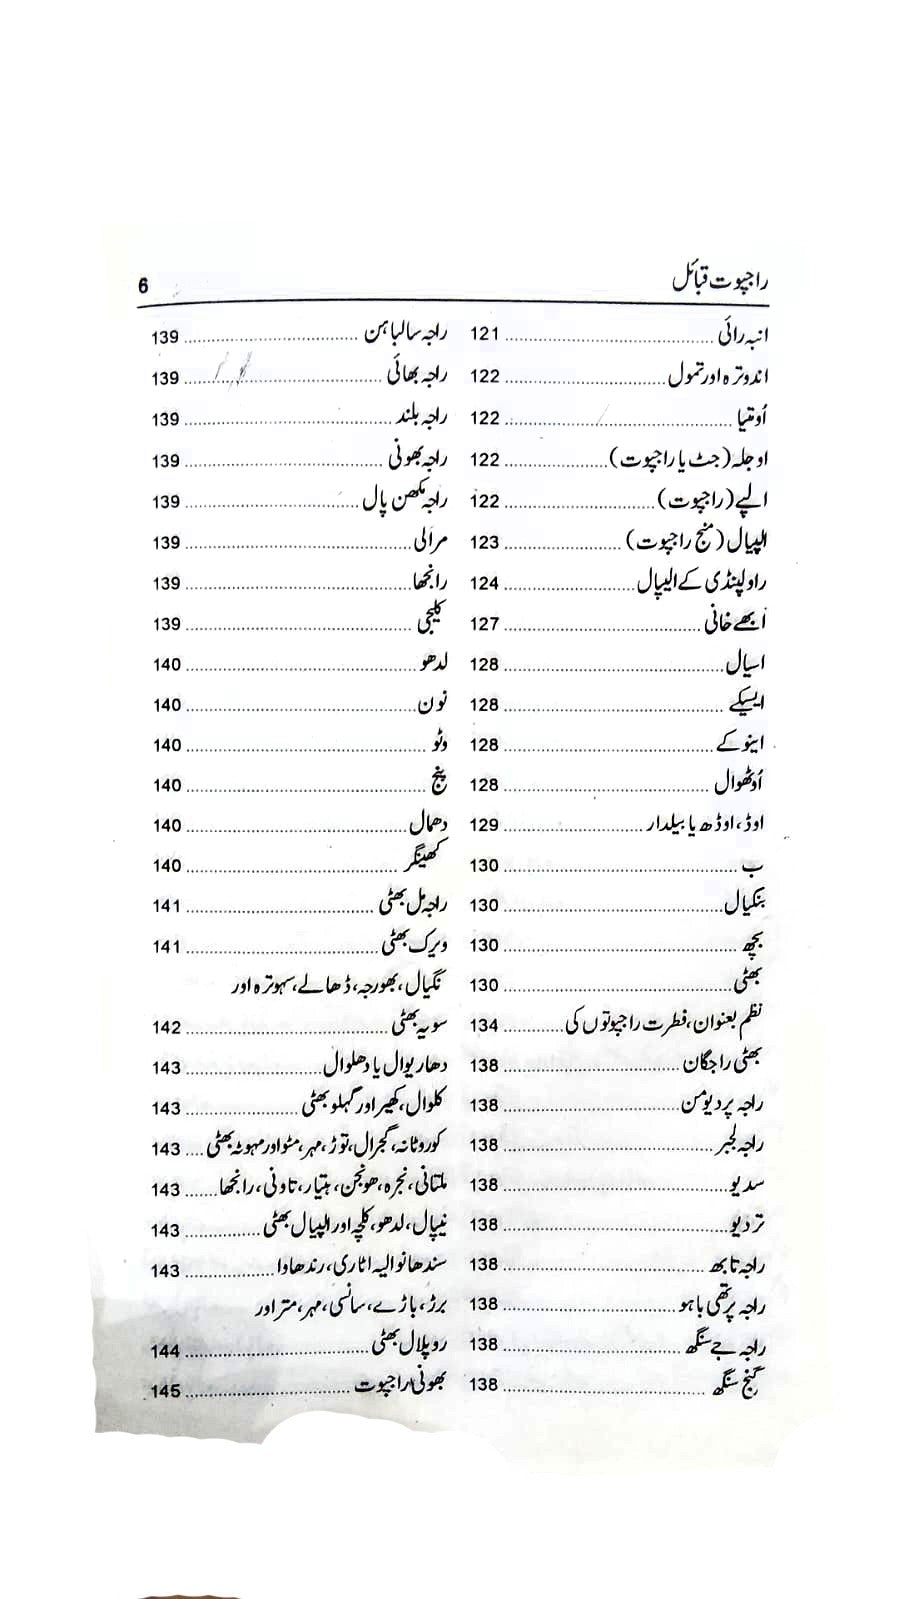 راجپوت قبائل 6
انبہ رائی 121
اندوترہ اور تمول 122
اُوتیا 122
اوجلہ (جٹ یا راجپوت) 122
الپے (راجپوت) 122
الپیال (منج راجپوت) 123
راولپنڈی کے الیپال 124
ابھے خانی 127
اسیال 128
ایسیکے 128
اینوکے 128
اُوٹھوال 128
اوڈ، اوڈھ یا بیلدار 129
ب 130
بنکیال 130
بچھ 130
بھٹی 130
نظم بعنوان، فطرت راجپوتوں کی 134
بھٹی راجگان 138
راجہ پردیومن 138
راجہ لجبر 138
سدیو 138
تردیو 138
راجہ تابھ 138
راجہ پرتھی باہو 138
راجہ جے سنگھ 138
گنج سنگھ 138
راجہ سالباہن 139
راجہ بھائی 139
راجہ بلند 139
راجہ بھونی 139
راجہ مکھن پال 139
مرالی 139
رانجھا 139
کلیجی 139
لدھو 140
نون 140
وٹو 140
پنج 140
دھمال 140
کھینگر 140
راجہ مل بھٹی 141
ویرک بھٹی 141
نگیال، بھورجہ، ڈھالے، سہوترہ اور
سویہ بھٹی 142
دھاریوال یا دھلوال 143
کلوال، کھیر اور گہلو بھٹی 143
کوروٹانہ، گجرال، توڑ، مہر، مٹو اور مہوٹہ بھٹی 143
ملتانی، نجرہ، ھونجن، ہتیار، تاونی، رانجھا 143
نیپال، لدھو، کلچہ اور الپیال بھٹی 143
سندھانوالیہ اٹاری، رندھاوا 143
برڑ، باڑے، سانسی، مہر، متر اور
روپلال بھٹی 144
بھونی راجپوت 145